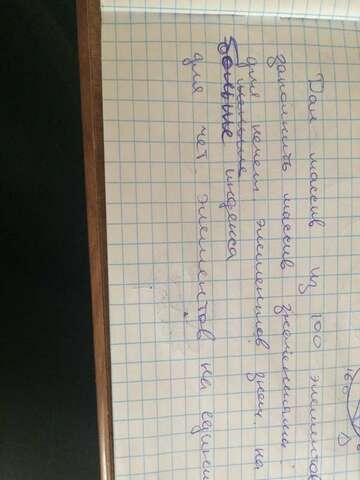 Дан массив из 100 элементов
заполнить массив значениями
для нечет. элементов знач. на
больше индекса
для чет. элементов на един
160